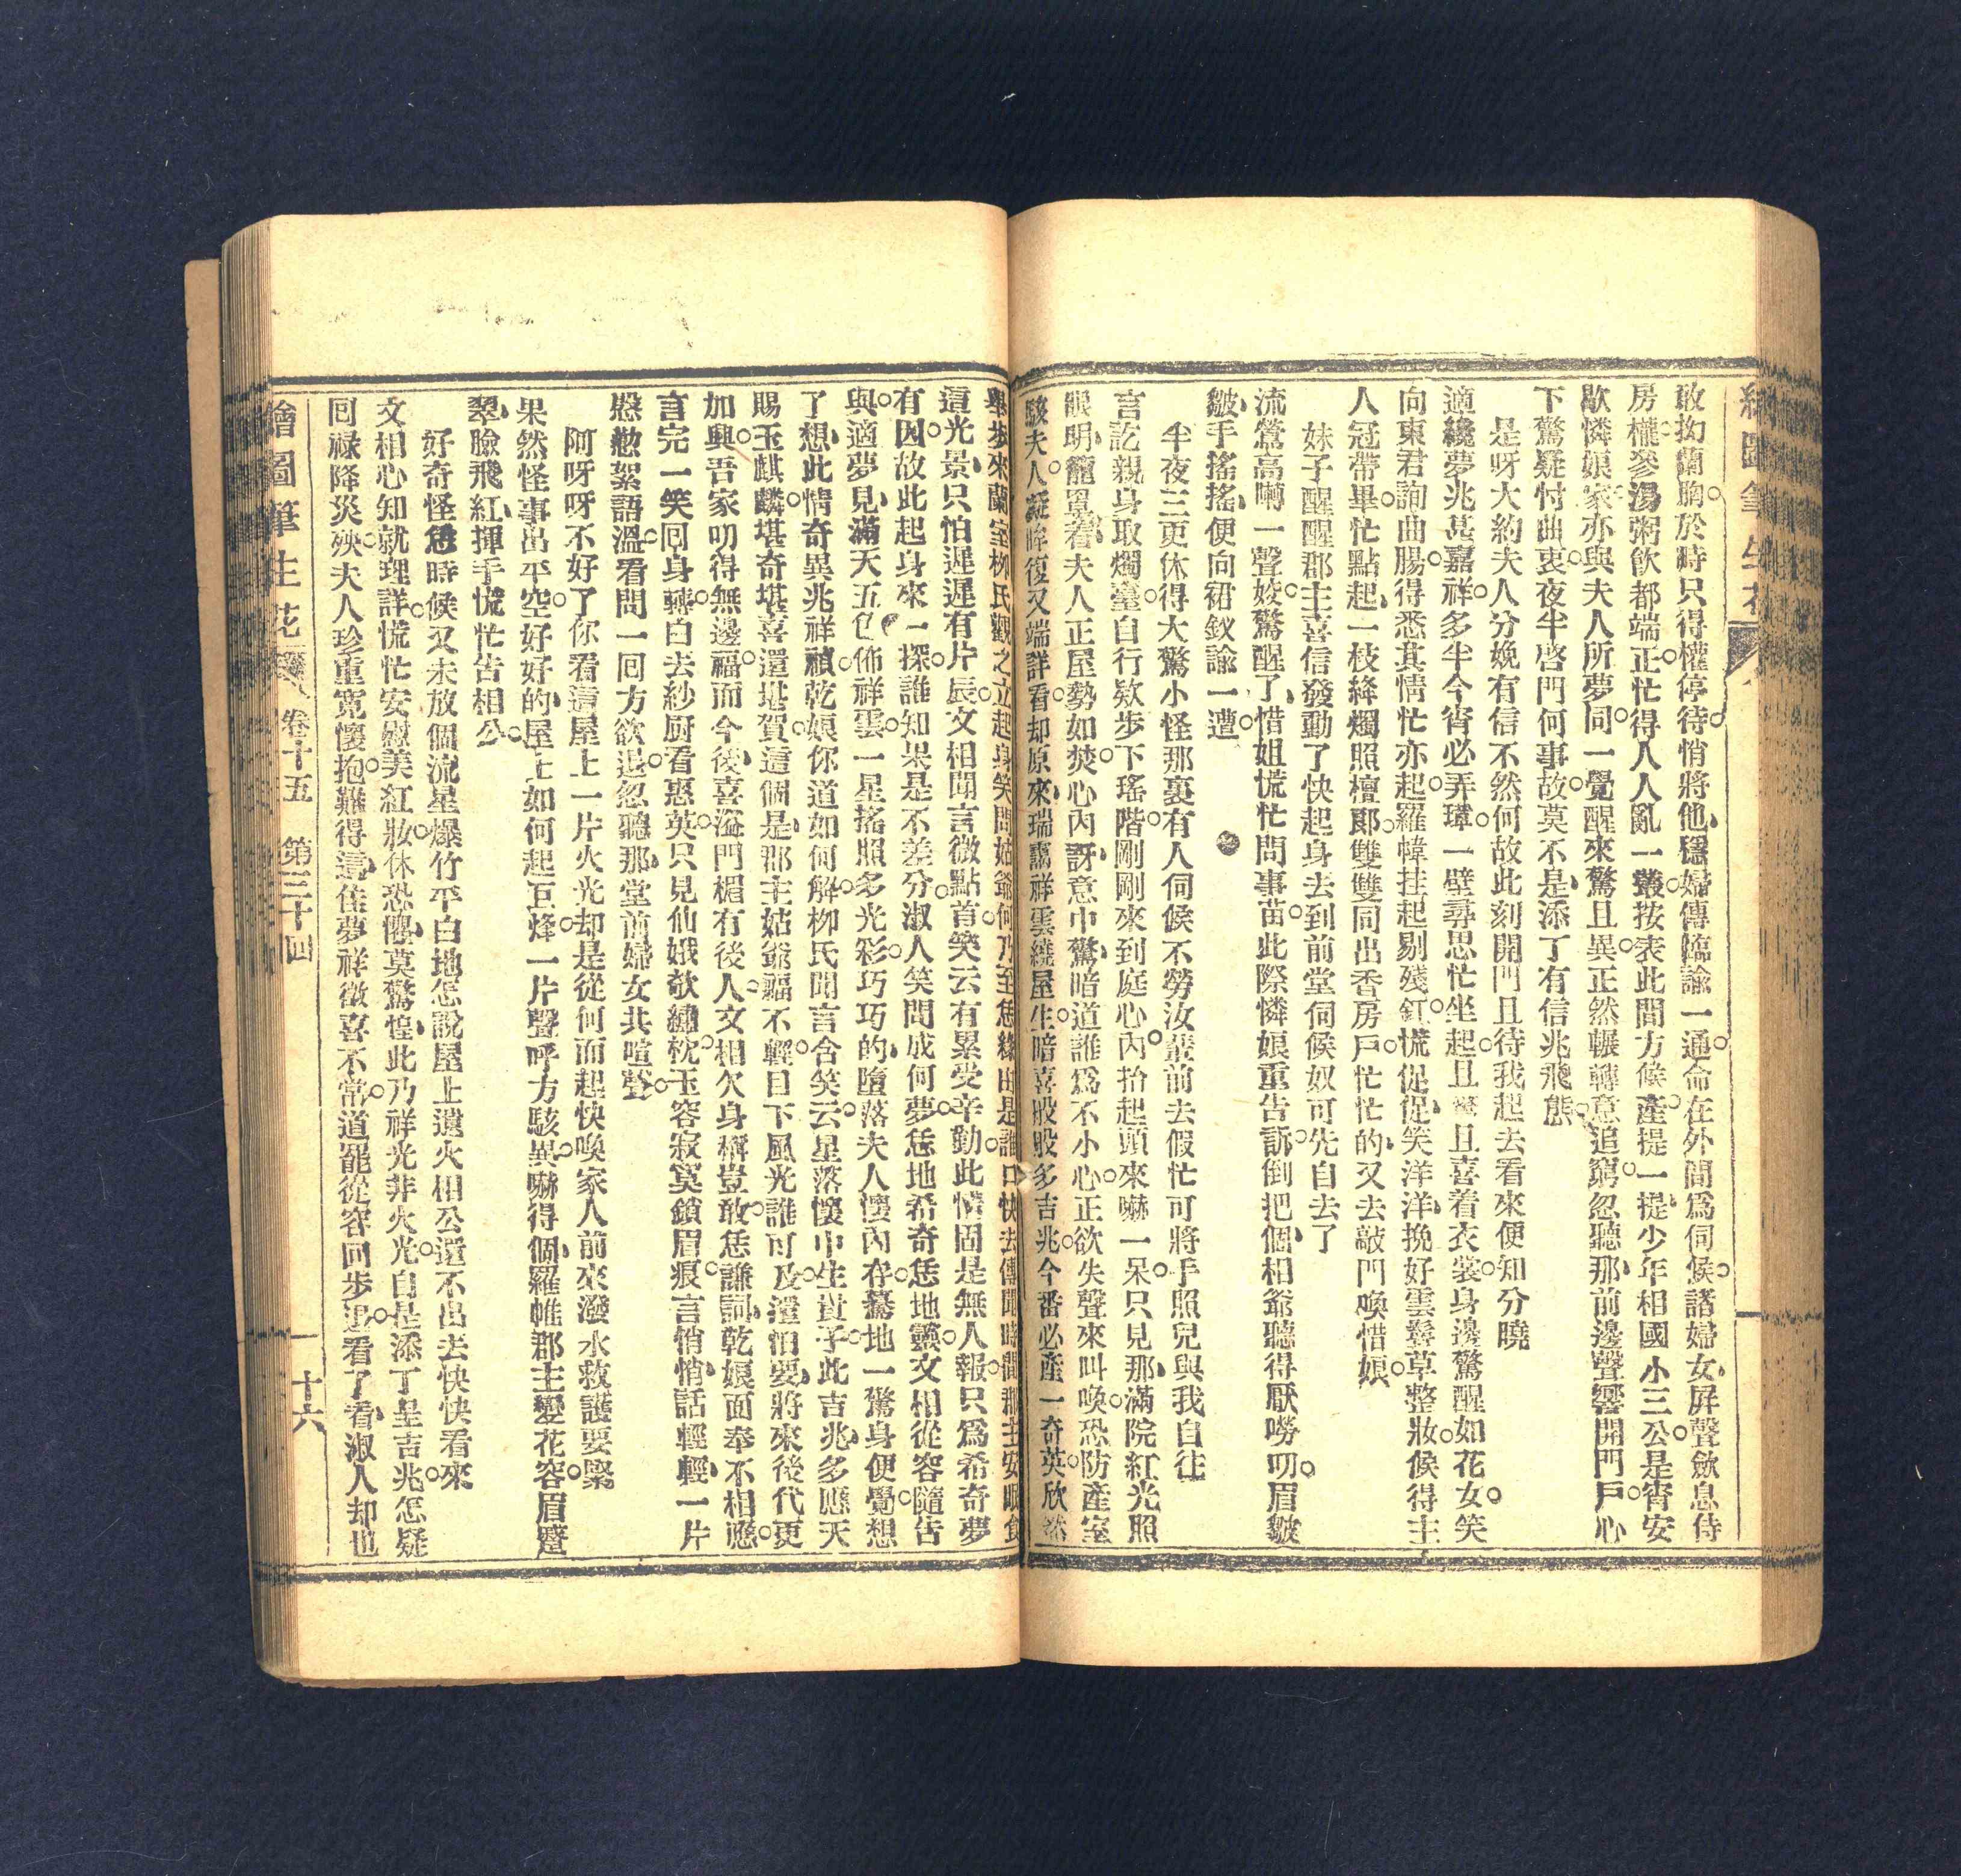 敢抝蘭胸於時只得權停待悄將他穩婦傳臨諭一通命在外間爲伺侯諸婦女屛聲歛息侍
房櫳參湯粥飮都端正忙得人人亂一叢按表此間方候產提一提少年相國小三公是宵安
歇憐娘家亦與夫人所夢同一覺醒來驚且異正然輾轉意追窮忽聽那前邊聲響開門戶心
下驚疑忖曲衷夜半啓門何事故莫不是添丁有信兆飛熊
是呀大約夫人分娩有信不然何故此刻開門且待我起去看來便知分曉
適纔夢兆甚嘉祥多半今宵必弄璋一壁尋思忙坐起且驚且喜着衣裳身邊驚醒如花女笑
向東君詢曲腸得悉其情忙亦起羅幃挂起剔殘釭慌促促笑洋洋挽好雲鬟草整妝候得主
人冠帶畢忙點起一枝絳燭照檀郎雙雙同出香房戶忙忙的又去敲門喚惜娘
妹子醒醒郡主喜信發動了快起身去到前堂伺候奴可先自去了
流鶯高囀一聲姣驚醒了惜姐慌忙問事苗此際憐娘重告訴倒把個相爺聽得厭嘮叨眉皺
皺手搖搖便向裙釵諭一遭
半夜三更休得大驚小怪那裏有人伺候不勞汝輩前去假忙可將手照兒與我自往
言訖親身取燭臺自行欵步下瑤階剛剛來到庭心內抬起頭來嚇一呆只見那滿院紅光照
眼明籠罩着夫人正屋勢如焚心內訝意中驚暗道誰爲不小心正欲失聲來叫喚恐防產室
駭夫人凝眸復又端詳看却原來瑞靄祥雲繞屋生暗喜般般多吉兆今番必產一奇英欣然
舉步來蘭室柳氏觀之立起身笑問姑爺何乃至恁緣由是誰口快去傳聞時間郡主安眠食
這光景只怕遲遲有片辰文相聞言微點首笑云有累受辛勤此情固是無人報只爲希奇夢
有因故此起身來一探誰知果是不差分淑人笑問成何夢恁地希奇恁地靈文相從容隨告
與適夢見滿天五色佈祥雲一星搖照多光彩巧巧的墮落夫人懷內存驀地一驚身便覺想
了想此情奇異兆祥禎乾娘你道如何解柳氏聞言含笑云星落懷中生貴子此吉兆多應天
賜玉麒麟堪奇堪喜還堪賀這個是郡主姑爺福不輕目下風光誰可及還怕要將來後代更
加興吾家叨得無邊福而今後喜溢門楣有後人文相欠身稱豈敢恁謙詞乾娘面奉不相應
言完一笑囘身轉白去紗厨看惠英只見仙娥欹繡枕玉容寂寞鎖眉痕言悄悄話輕輕一片
慇懃絮語溫看問一囘方欲退忽聽那堂前婦女共喧聲
阿呀呀不好了你看這屋上一片火光却是從何而起快喚家人前來潑水救護要緊
果然怪事出平空好好的屋上如何起亘烽一片聲呼方駭異嚇得個羅帷郡主變花容眉蹙
翠臉飛紅揮手慌忙告相公
好奇怪恁時候又未放個流星爆竹平白地怎說屋上遺火相公還不出去快快看來
文相心知就理詳慌忙安慰美紅妝休恐懼莫驚惶此乃祥光非火光自是添丁呈吉兆怎疑
囘祿降災殃夫人珍重寬懷抱難得這佳夢祥徵喜不常道罷從容囘步退看了看淑人却也
繪圖筆生花 卷十五 第三十回 十六